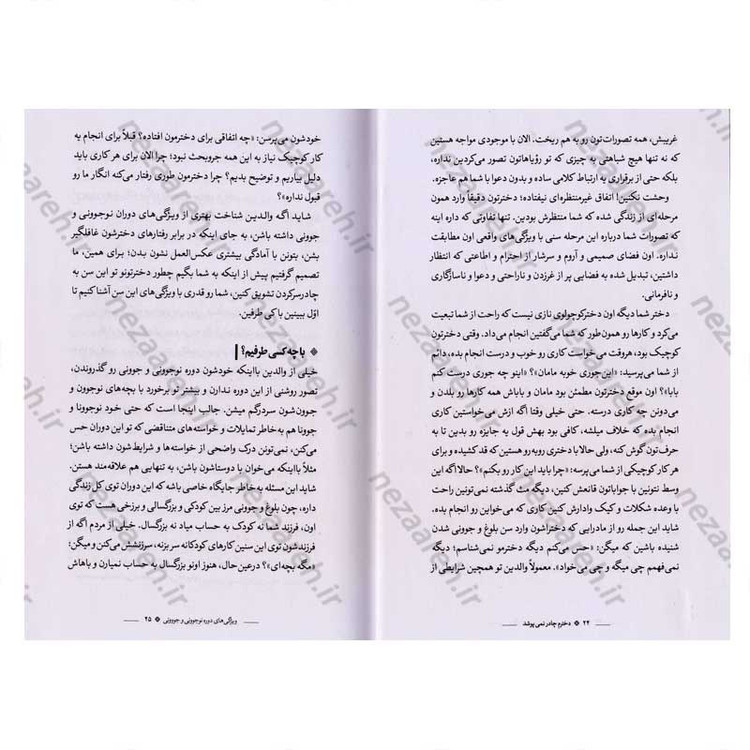 غریبش، همه تصورات‌تون رو به هم ریخت. الان با موجودی مواجه هستین
که نه تنها هیچ شباهتی به چیزی که تو رؤیاهاتون تصور می‌کردین نداره،
بلکه حتی از برقراری یه ارتباط کلامی ساده و بدون دعوا با شما هم عاجزه.
وحشت نکنین! اتفاق غیرمنتظره‌ای نیفتاده؛ دخترتون دقیقاً وارد همون
مرحله‌ای از زندگی شده که شما منتظرش بودین. تنها تفاوتی که داره اینه
که تصورات شما درباره این مرحله سنی با ویژگی‌های واقعی اون مطابقت
نداره. اون فضای صمیمی و آروم و سرشار از احترام و اطاعتی که انتظار
داشتین، تبدیل شده به فضایی پر از غرزدن و ناراحتی و دعوا و ناسازگاری
و نافرمانی.
دختر شما دیگه اون دخترکوچولوی نازی نیست که راحت از شما تبعیت
می‌کرد و کارها رو همون‌طور که شما می‌گفتین انجام می‌داد. وقتی دخترتون
کوچیک بود، هروقت می‌خواست کاری رو خوب و درست انجام بده، دائم
از شما می‌پرسید: «این‌جوری خوبه مامان؟» «اینو چه جوری درست کنم
بابا»؟ اون موقع دخترتون مطمئن بود مامان و باباش همه کارها رو بلدن و
می‌دونن چه کاری درسته. حتی خیلی وقتا اگه ازش می‌خواستین کاری
انجام بده که خلاف میلشه، کافی بود بهش قول یه جایزه رو بدین تا به
حرف‌تون گوش کنه، ولی حالا با دختری روبه‌رو هستین که قد کشیده و برای
هر کار کوچیکی از شما می‌پرسه: «چرا باید این کار رو بکنم»؟ حالا اگه این
وسط نتونین با جواباتون قانعش کنین، دیگه مث گذشته نمی‌تونین راحت
با وعده شکلات و کیک وادارش کنین کاری که می‌خواین رو انجام بده.
شاید این جمله رو از مادرایی که دختراشون وارد سن بلوغ و جوونی شدن
شنیده باشین که میگن: «حس می‌کنم دیگه دخترمو نمی‌شناسم؛ دیگه
نمی‌فهمم چی میگه و چی می‌خواد». معمولاً والدین تو همچین شرایطی از
۲۴ ❖ دخترم چادر نمی‌پوشد
خودشون می‌پرسن: «چه اتفاقی برای دخترمون افتاده؟ قبلاً برای انجام یه
کار کوچیک نیاز به این همه جروبحث نبود؛ چرا الان برای هر کاری باید
دلیل بیاریم و توضیح بدیم؟ چرا دخترمون طوری رفتار می‌کنه انگار ما رو
قبول نداره»؟
شاید اگه والدین شناخت بهتری از ویژگی‌های دوران نوجوونی و
جوونی داشته باشن، به جای اینکه در برابر رفتارهای دخترشون غافلگیر
بشن، بتونن با آمادگی بیشتری عکس‌العمل نشون بدن؛ برای همین، ما
تصمیم گرفتیم پیش از اینکه به شما بگیم چطور دخترتونو تو این سن به
چادرسرکردن تشویق کنین، شما رو قدری با ویژگی‌های این سن آشنا کنیم تا
اوّل ببینین با کی طرفین.
❖ با چه کسی طرفیم؟
خیلی از والدین بااینکه خودشون دوره نوجوونی و جوونی رو گذروندن،
تصور روشنی از این دوره ندارن و بیشتر تو برخورد با بچه‌های نوجوون و
جوون‌شون سردرگم میشن. جالب اینجا است که حتی خود نوجوونا و
جوونا هم به‌خاطر تمایلات و خواسته‌های متناقضی که تو این دوران حس
می‌کنن، نمی‌تونن درک واضحی از خواسته‌ها و شرایط‌شون داشته باشن؛
مثلاً بااینکه می‌خوان با دوستاشون باشن، به تنهایی هم علاقه‌مند هستن.
شاید این مسئله به‌خاطر جایگاه خاصی باشه که این دوران توی کل زندگی
داره، چون بلوغ و جوونی مرز بین کودکی و بزرگسالی و برزخی هست که توی
اون، فرزند شما نه کودک به حساب میاد نه بزرگسال. خیلی از مردم اگه از
فرزندشون توی این سنین کارهای کودکانه سر بزنه، سرزنشش می‌کنن و میگن؛
«مگه بچه‌ای»؟ درعین حال، هنوز اونو بزرگسال به حساب نمیارن و باهاش
ویژگی‌های دوره نوجوونی و جوونی ❖ ۲۵
nezaareh.ir